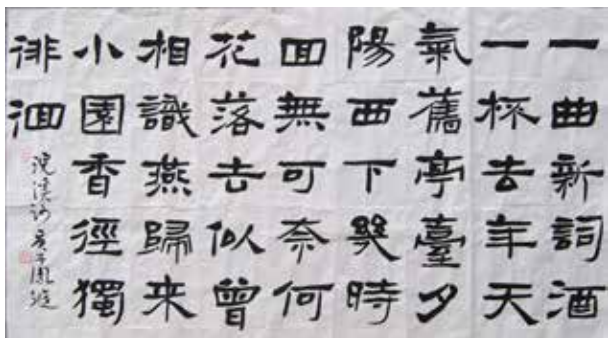 一曲新詞酒
一杯去年天
氣舊亭臺夕
陽西下幾時
囬無可奈何
花落去似曾
相識燕歸來
小園香徑獨
徘徊
浣溪沙